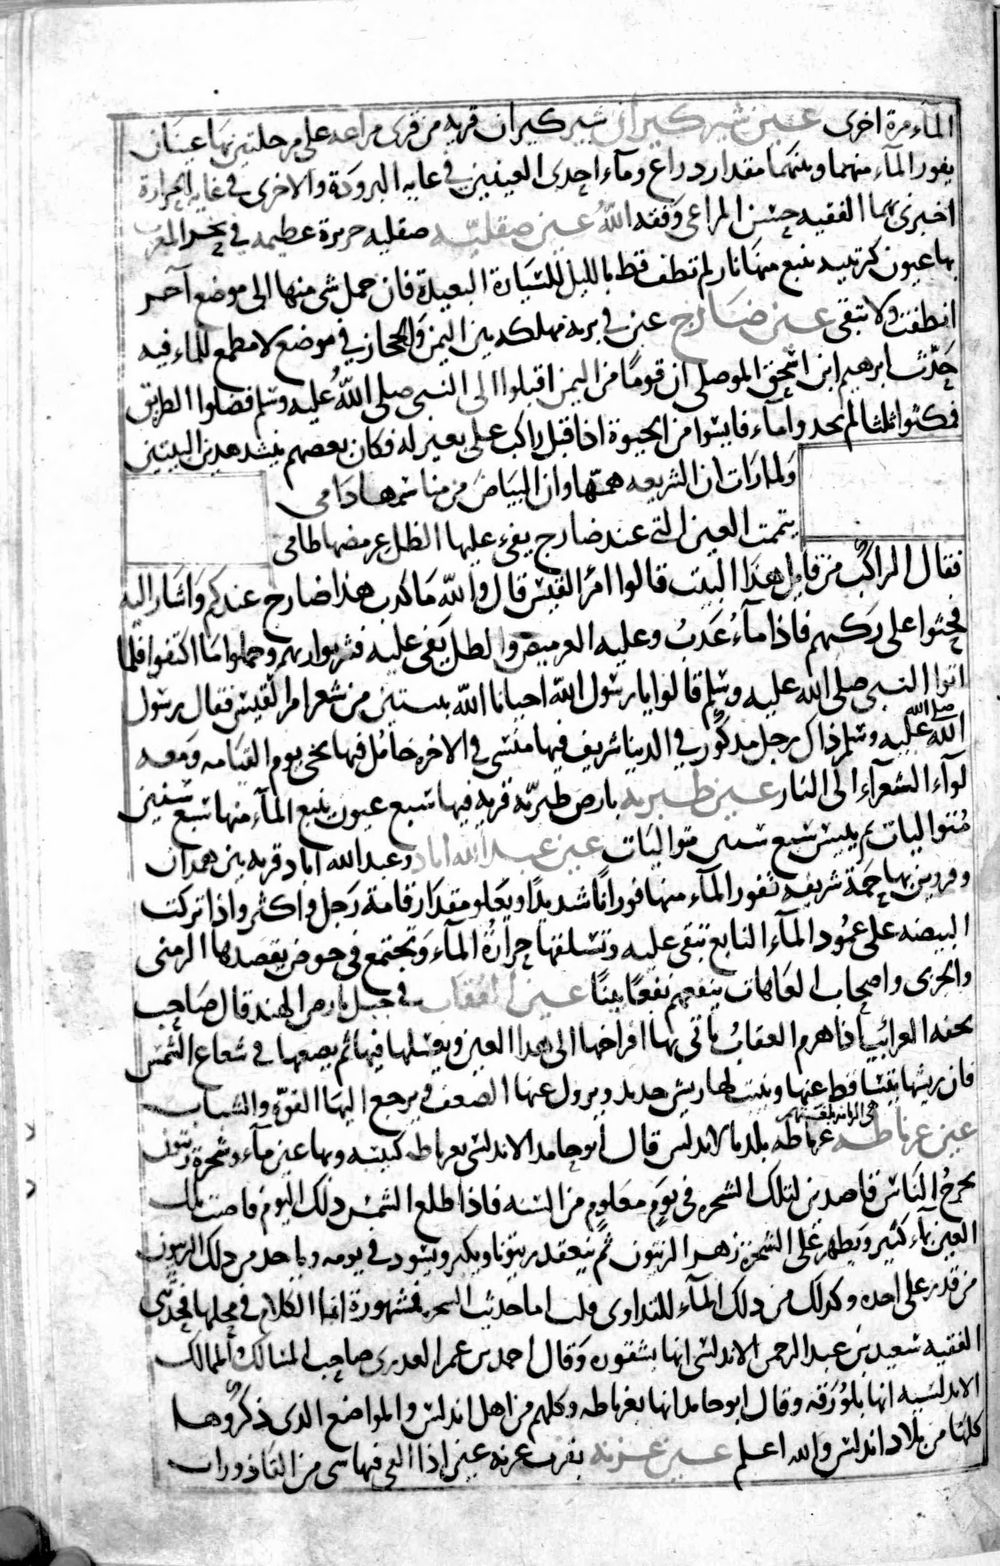 المآء مرة اخرى عين شيركيران شيركيران قرية من قرى مراغه على مرحلتين منها عينان
يفور المآء منهما وبينهما مقدار دراع ومآء احدى العينين في غايه البرودة والاخرى في غايه الحرارة
اخبرنى بها الفقيه حسن المراعى وفقه الله عين صقلية صقليه جزيرة عظيمه في بحر المغرب
بها عيون كبريتيه ينبع منها نار لم تطف قط بالليل للسيارة البعيدة فان حمل شى منها الى موضع آخر
انطفت ولا تبقى عين ضارج عين في برية مهلكه بين اليمن والحجاز في موضع لا مطمع للماء فيه
حدث ابرهيم ابن اسحق الموصلى ان قوما من اليمن اقبلوا الى النبي صلى الله عليه وسلم فضلوا الطريق
فمكثوا ثلثا لم يجدوا مآء فايسوا من الحيوة اذا قبل راكب على بعير له فكان بعضهم ينشد هدين البيتين
ولما رات ان الشريعه همها وان البياض من فرائصها دامى
تيممت العين التي عند ضارج يفىء عليها الظل عرمضها طامى
فقال الراكب من قايل هذا البيت قالوا امرؤ القيس قال والله ما كدب هذا ضارج عندكم واشار اليه
فجثوا على ركبهم فاذا مآء عذب وعليه العرمض والظل يفى عليه فشربوا ريهم وحملوا ما اكتفوا فلما
اتوا النبي صلى الله عليه وسلم قالوا يا رسول الله احيانا الله ببيتين من شعر امرؤ القيس فقال رسول
الله صلى الله عليه وسلم ذاك رجل مدكور في الدنيا شريف فيها منسى في الاخرة خامل فيها يجى يوم القيامه ومعه
لوآء الشعرآء الى النار عين طبريه بارض طبريّه قريه فيها سبع عيون ينبع المآء منها سبع سنين
متواليات ثم ييبس سبع سنين متواليات عين عبدالله اباد وعبد الله اباد قريه بين همدان
وقزوين بها حمة شريفه تفور المآء منها فورانا شديدا ويعلو مقدار قامة رجل واكثر واذا تركت
البيضه على عمود المآء النابع تبقى عليه وتسلقها حرارة المآء وتجتمع في حوض يقصدها الزمنى
والجربى واصحاب العاهات ينفعهم نفعا بينا عين العقاب في جبل بارض الهند قال صاحب
تحفه الغرائب اذا هرم العقاب ياتى بها افراخها الى هذا العين ويغسلها فيها ثم يضعها في شعاع الشمس
فان ريشها يتساقط عنها وينبت لها ريش جديد ويزول عنها الضعف ويرجع اليها القوّة والشباب
عين غرناطه غرناطه بلد بالاندلس قال ابو حامد الاندلسى بغرناطه كنيسه وبها عين مآء وشجرة زيتون
يخرج الناس قاصدين لتلك الشجره في يوم معلوم من السنه فاذا طلع الشمس ذلك اليوم فاضت تلك
العين بمآء كثير ويظهر على الشجرة زهر الزيتون ثم ينعقد زيتونا ويكبر ويسود في يومه وياخد من ذلك الزيتون
من قدر على اخده وكذلك من ذلك المآء للتداوى قلت اما حديث الشجره فمشهورة انما الكلام في محلها فحدثنى
الفقيه سعيد بن عبد الرحمن الاندلسى انها بشقوره وقال احمد بن عمر العذرى صاحب المسالك والممالك
الاندلسيه انها بلورقه وقال ابو حامد انها بغرناطه وكلهم من اهل اندلس والمواضع الذى ذكروها
كلها من بلاد اندلس والله اعلم عين غزنه بقرب غزنه عين اذا القى فيها شى من القاذورات